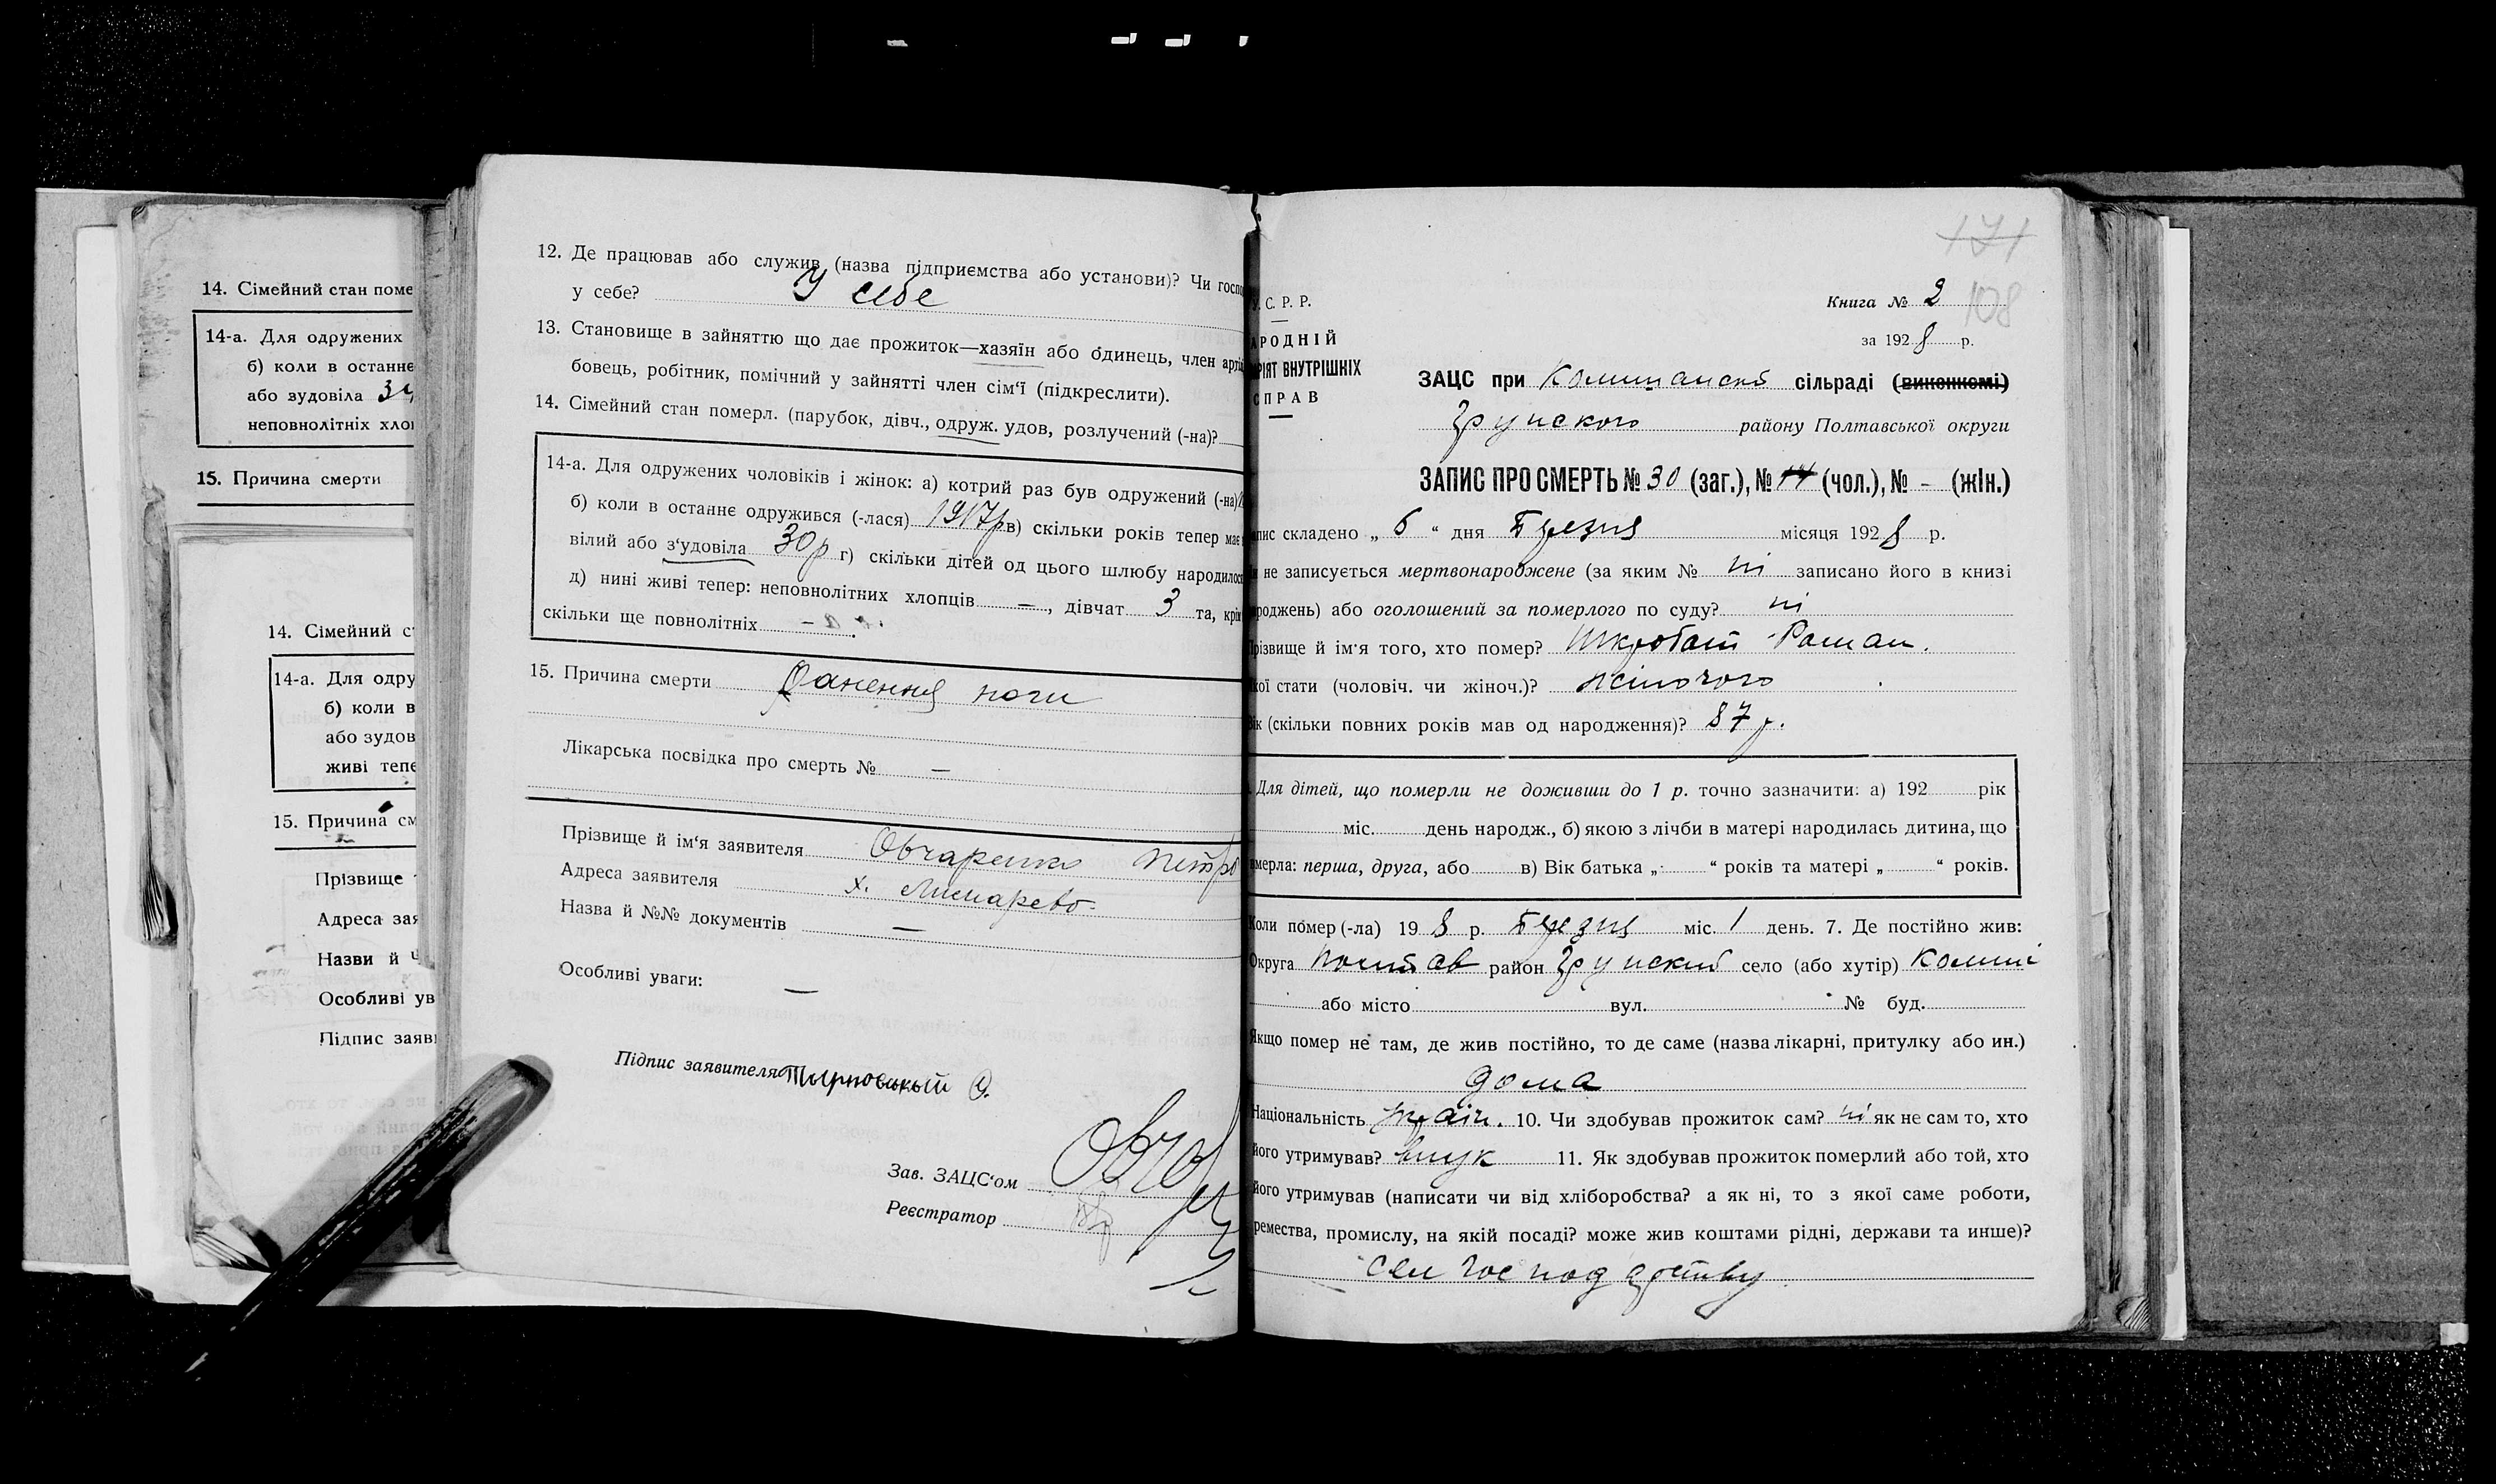 14. Сімейний стан поме
14-а. Для одружених
б) коли в останнє
або зудовіла
неповнолітніх хло
15. Причина смерти
14. Сімейний ст
14-а. Для одру
б) коли в
або зудов
живі тепе
15. Причина см
Прізвище
Адреса зая
Назви й
Особливі ув
Підпис заяв
12. Де працював або служив (назва підприємства або установи)? Чи госпо
у себе? У себе
13. Становище в зайняттю що дає прожиток—хазяїн або одинець, член арті
бовець, робітник, помічний у зайнятті член сім‘ї (підкреслити).
14. Сімейний стан померл. (парубок, дівч., одруж. удов, розлучений (-на)?
14-а. Для одружених чоловіків і жінок: а) котрий раз був одружений (-на)
б) коли в останнє одружився (-лася) 1917р в) скільки років тепер має
вілий або з‘удовіла 30р г) скільки дітей од цього шлюбу народилос
д) нині живі тепер: неповнолітніх хлопців — , дівчат 3 та, крім
скільки ще повнолітніх —
15. Причина смерти Ранення ноги
Лікарська посвідка про смерть № —
Прізвище й ім‘я заявителя Овчаренко Петро
Адреса заявителя х.
Назва й №№ документів —
Особливі уваги: —
Підпис заявителя
Зав. ЗАЦС‘ом
Реєстратор
171
108
У. С. Р. Р.
АРОДНІЙ
РІЯТ ВНУТРІШНІХ
СПРАВ
Книга № 2
за 1928 р.
ЗАЦС при сільраді (виконкомі)
Грунского району Полтавської округи
ЗАПИС ПРО СМЕРТЬ № 30 (заг.), № 17 (чол.), № – (жін.)
апис складено „ 6 “ дня Березня місяця 1928 р.
и не записується мертвонароджене (за яким № ні записано його в книзі
ароджень) або оголошений за померлого по суду? ні
Прізвище й ім‘я того, хто помер? Шкробот Роман.
кої стати (чоловіч. чи жіноч.)? жіночого
Вік (скільки повних років мав од народження)? 87 р.
Для дітей, що померли не доживши до 1 р. точно зазначити: а) 192 рік
міс. день народж., б) якою з лічби в матері народилась дитина, що
вмерла: перша, друга, або в) Вік батька „ “ років та матері „ “ років.
Коли помер (-ла) 19 8 р. Березня міс. 1 день. 7. Де постійно жив:
Округа Полтав район Грунский село (або хутір)
або місто вул. № буд.
Якщо помер не там, де жив постійно, то де саме (назва лікарні, притулку або ин.)
дома
Національність україн. 10. Чи здобував прожиток сам? ні як не сам то, хто
його утримував? внук 11. Як здобував прожиток померлий або той, хто
його утримував (написати чи від хліборобства? а як ні, то з якої саме роботи,
ремества, промислу, на якій посаді? може жив коштами рідні, держави та инше)?
сел господарству